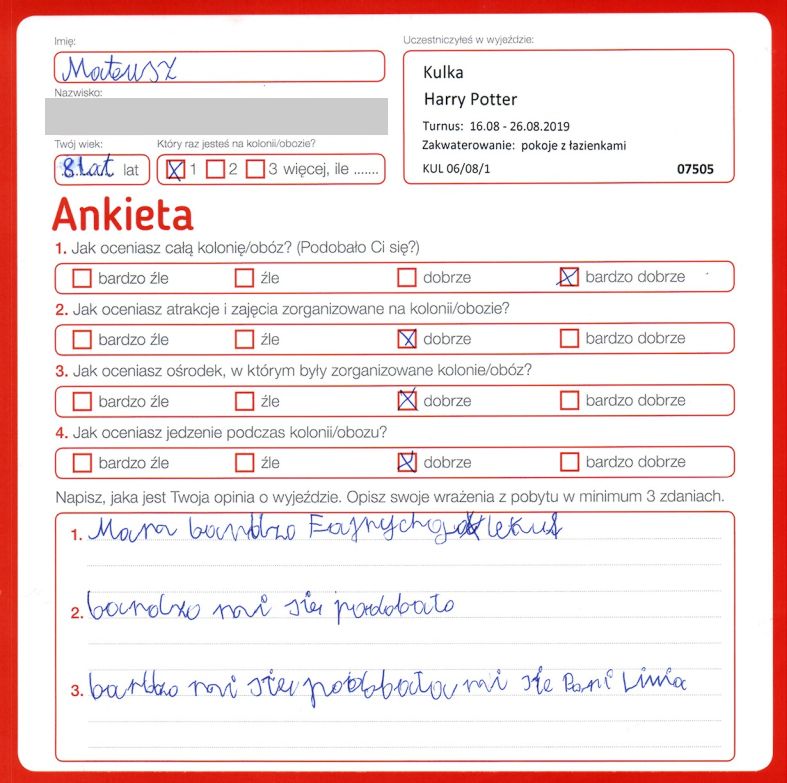 Imię:
Mateusz
Nazwisko:
Twój wiek:
8 lat lat
Który raz jesteś na kolonii/obozie?
1 2 3 więcej, ile .......
Uczestniczyłeś w wyjeździe:
Kulka
Harry Potter
Turnus: 16.08 - 26.08.2019
Zakwaterowanie: pokoje z łazienkami
KUL 06/08/1 07505
Ankieta
1. Jak oceniasz całą kolonię/obóz? (Podobało Ci się?)
bardzo źle źle dobrze bardzo dobrze
2. Jak oceniasz atrakcje i zajęcia zorganizowane na kolonii/obozie?
bardzo źle źle dobrze bardzo dobrze
3. Jak oceniasz ośrodek, w którym były zorganizowane kolonie/obóz?
bardzo źle źle dobrze bardzo dobrze
4. Jak oceniasz jedzenie podczas kolonii/obozu?
bardzo źle źle dobrze bardzo dobrze
Napisz, jaka jest Twoja opinia o wyjeździe. Opisz swoje wrażenia z pobytu w minimum 3 zdaniach.
1. bardzo Fajnych
2. bardzo mi się podobało
3. bardzo mi się podobała mi się Pani